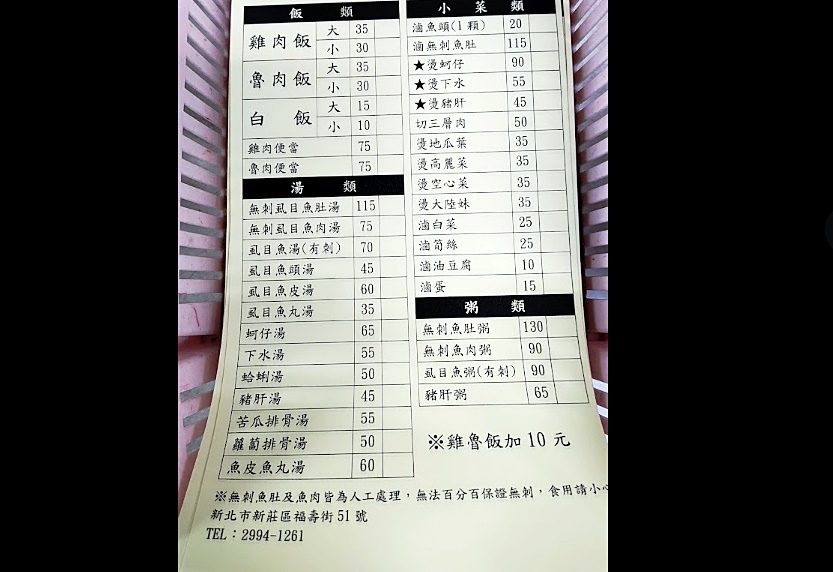 飯類
雞肉飯 大 35
小 30
魯肉飯 大 35
小 30
白飯 大 15
小 10
雞肉便當 75
魯肉便當 75
湯類
無刺虱目魚肚湯 115
無刺虱目魚肉湯 75
虱目魚湯(有刺) 70
虱目魚頭湯 45
虱目魚皮湯 60
虱目魚丸湯 35
蚵仔湯 65
下水湯 55
蛤蜊湯 50
豬肝湯 45
苦瓜排骨湯 55
蘿蔔排骨湯 50
魚皮魚丸湯 60
小菜類
滷魚頭(1顆) 20
滷無刺魚肚 115
★燙蚵仔 90
★燙下水 55
★燙豬肝 45
切三層肉 50
燙地瓜葉 35
燙高麗菜 35
燙空心菜 35
燙大陸妹 35
滷白菜 25
滷筍絲 25
滷油豆腐 10
滷蛋 15
粥類
無刺魚肚粥 130
無刺魚肉粥 90
虱目魚粥(有刺) 90
豬肝粥 65
※雞魯飯加10元
※無刺魚肚及魚肉皆為人工處理，無法百分百保證無刺，食用請小心
新北市新莊區福壽街51號
TEL：2994-1261